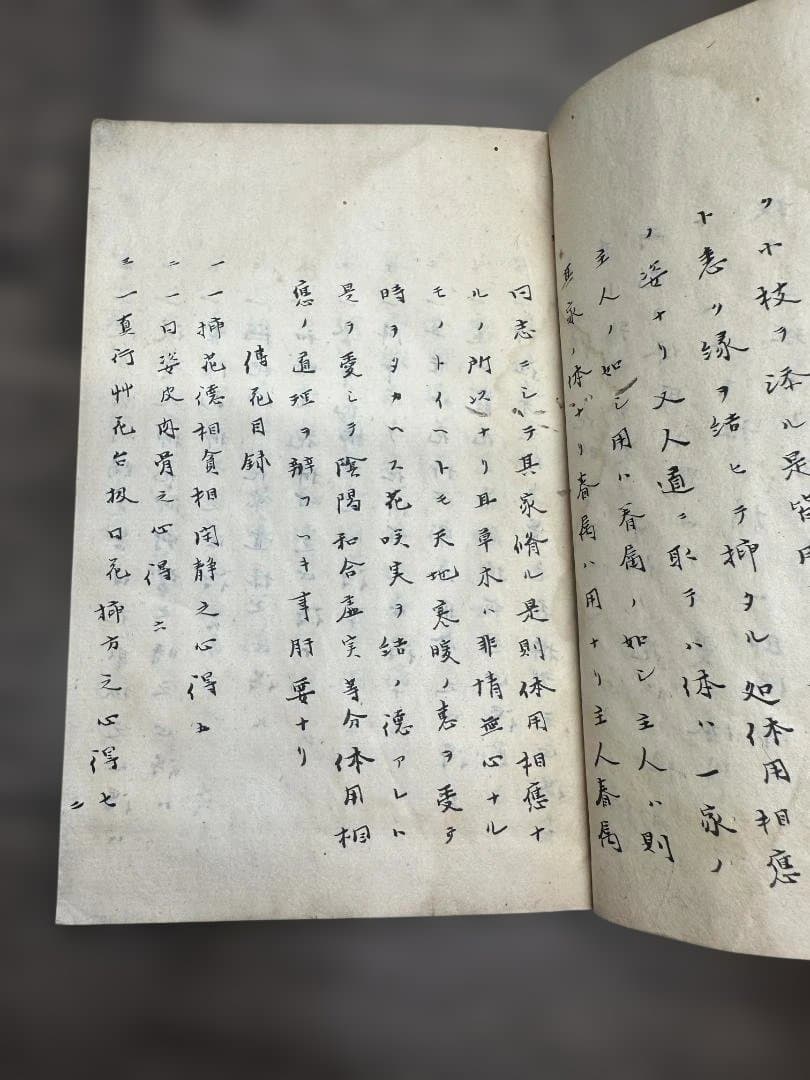 ク小枝ヲ添ル是皆用
ト志ノ縁ヲ結ヒテ挿タル如体用相應
ノ姿ナリ又人道ニ取テハ体ハ一家ノ
主人ノ如シ用ハ眷属ノ如シ主人ハ則
其家ノ体ナリ眷属ハ用ナリ主人眷属
同志ニシテ其家脩ル是則体用相應ナ
ルノ所以ナリ且草木ハ非情無心ナル
モノトイヘトモ天地寒暖ノ恵ヲ受テ
時ヲタカヘス花咲実ヲ結ノ德アレハ
是ヲ愛シテ陰陽和合虚実等分体用相
應ノ道理ヲ辨フヘキ事肝要ナリ
傳花目録
一一挿花德相貪相閑静之心得
二一同姿皮肉骨之心得二
三一真行艸花台扱口花挿方之心得七